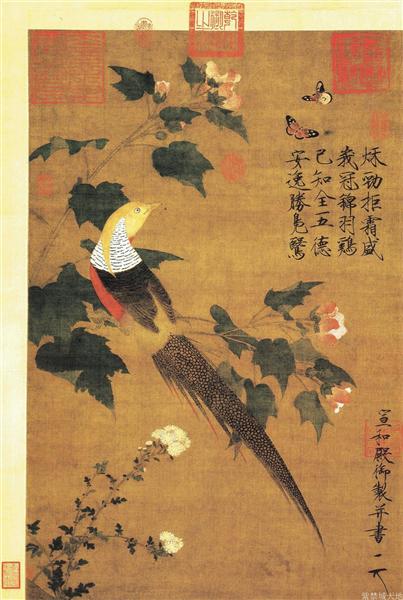 秋勁拒霜盛
峩冠錦羽鷄
已知全五德
安逸勝鳧鷖
宣和殿御製并書
紫禁城天地